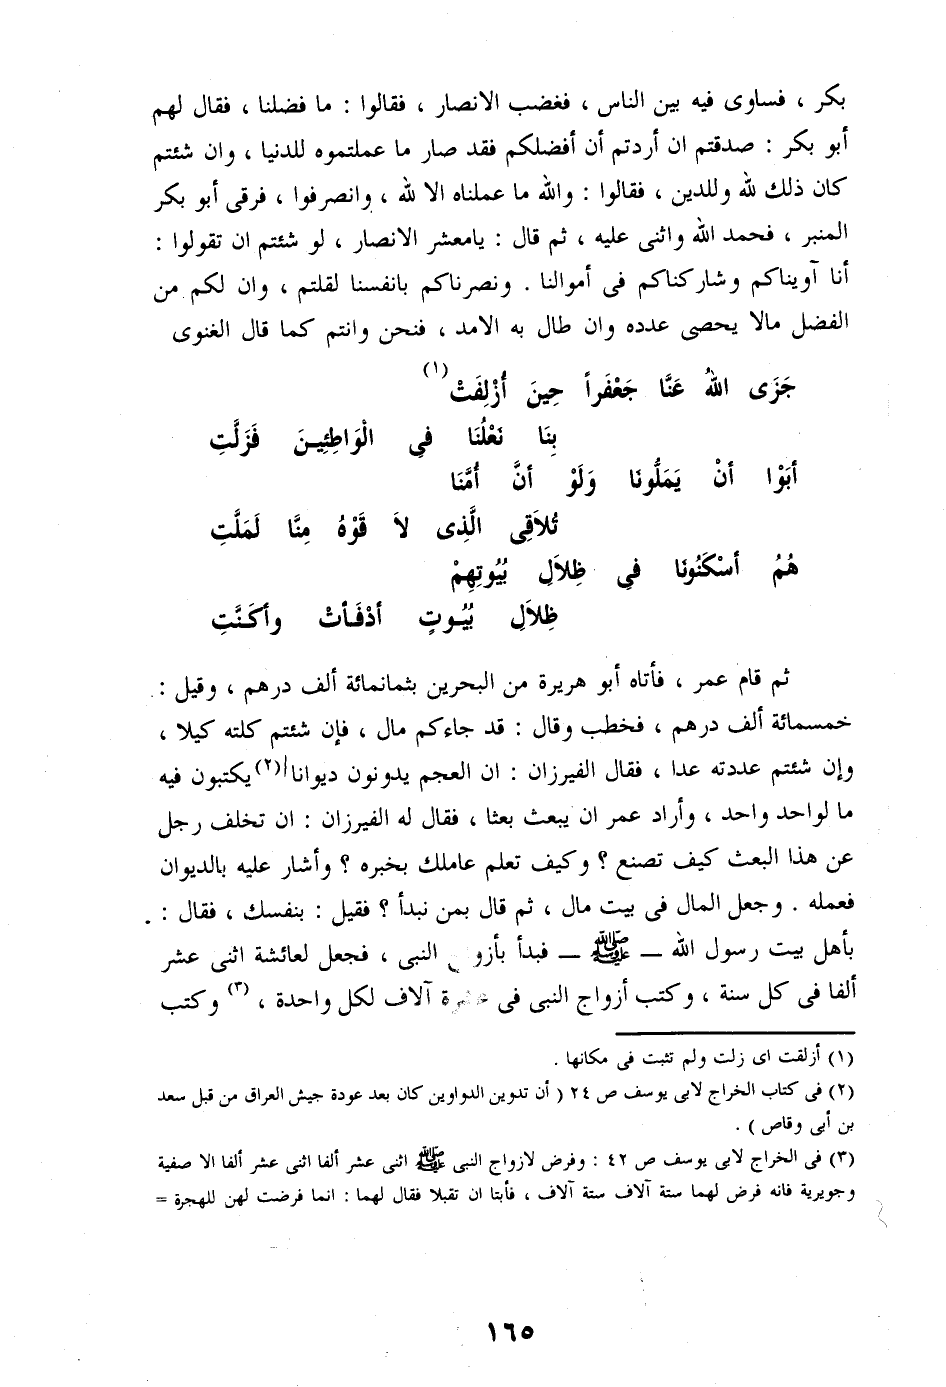 بكر ، فساوى فيه بين الناس ، فغضب الانصار ، فقالوا : ما فضلنا ، فقال لهم
أبو بكر : صدقتم ان أردتم أن أفضلكم فقد صار ما عملتموه للدنيا ، وان شئتم
كان ذلك لله وللدين ، فقالوا : والله ما عملناه الا لله ، وانصرفوا ، فرقى أبو بكر
المنبر ، فحمد الله واثنى عليه ، ثم قال : يامعشر الانصار ، لو شئتم ان تقولوا :
أنا آويناكم وشاركناكم فى أموالنا . ونصرناكم بانفسنا لقلتم ، وان لكم من
الفضل مالا يحصى عدده وان طال به الامد ، فنحن وانتم كما قال الغنوى
جَزَى اللهُ عَنَّا جَعْفَراً حِينَ أُزْلِفَتْ (١)
بِنَا نَعْلُنَا فى الْوَاطِئِينَ فَزَلَّتِ
أبَوْا أنْ يَمَلُّونَا وَلَوْ أنَّ أُمَّنَا
تُلاَقِى الَّذِى لاَ قَوْهُ مِنَّا لَمَلَّتِ
هُمُ أسْكَنُونَا فى ظِلاَلِ بُيُوتِهِمْ
ظِلاَلِ بُيُوتٍ أدْفَأتْ وأكَنَّتِ
ثم قام عمر ، فأتاه أبو هريرة من البحرين بثمانمائة ألف درهم ، وقيل :
خمسمائة ألف درهم ، فخطب وقال : قد جاءكم مال ، فإن شئتم كلته كيلا ،
وإن شئتم عددته عدا ، فقال الفيرزان : ان العجم يدونون ديوانا(٢) يكتبون فيه
ما لواحد واحد ، وأراد عمر ان يبعث بعثا ، فقال له الفيرزان : ان تخلف رجل
عن هذا البعث كيف تصنع ؟ وكيف تعلم عاملك بخبره ؟ وأشار عليه بالديوان
فعمله . وجعل المال فى بيت مال ، ثم قال بمن نبدأ ؟ فقيل : بنفسك ، فقال :
بأهل بيت رسول الله ــ ﷺ ــ فبدأ بأزواج النبى ، فجعل لعائشة اثنى عشر
ألفا فى كل سنة ، وكتب أزواج النبى فى عشرة آلاف لكل واحدة ، (٣) وكتب
(١) أزلقت اى زلت ولم تثبت فى مكانها .
(٢) فى كتاب الخراج لابى يوسف ص ٢٤ ( أن تدوين الدواوين كان بعد عودة جيش العراق من قبل سعد
بن أبى وقاص ) .
(٣) فى الخراج لابى يوسف ص ٤٢ : وفرض لازواج النبى ﷺ اثنى عشر ألفا اثنى عشر ألفا الا صفية
وجويرية فانه فرض لهما ستة آلاف ستة آلاف ، فأبتا ان تقبلا فقال لهما : انما فرضت لهن للهجرة =
١٦٥